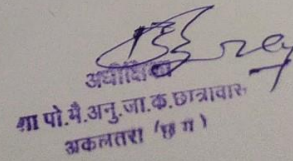 अधीक्षिका
शा पो.मै.अनु.जा.क.छात्रावास
अकलतरा (छ ग)